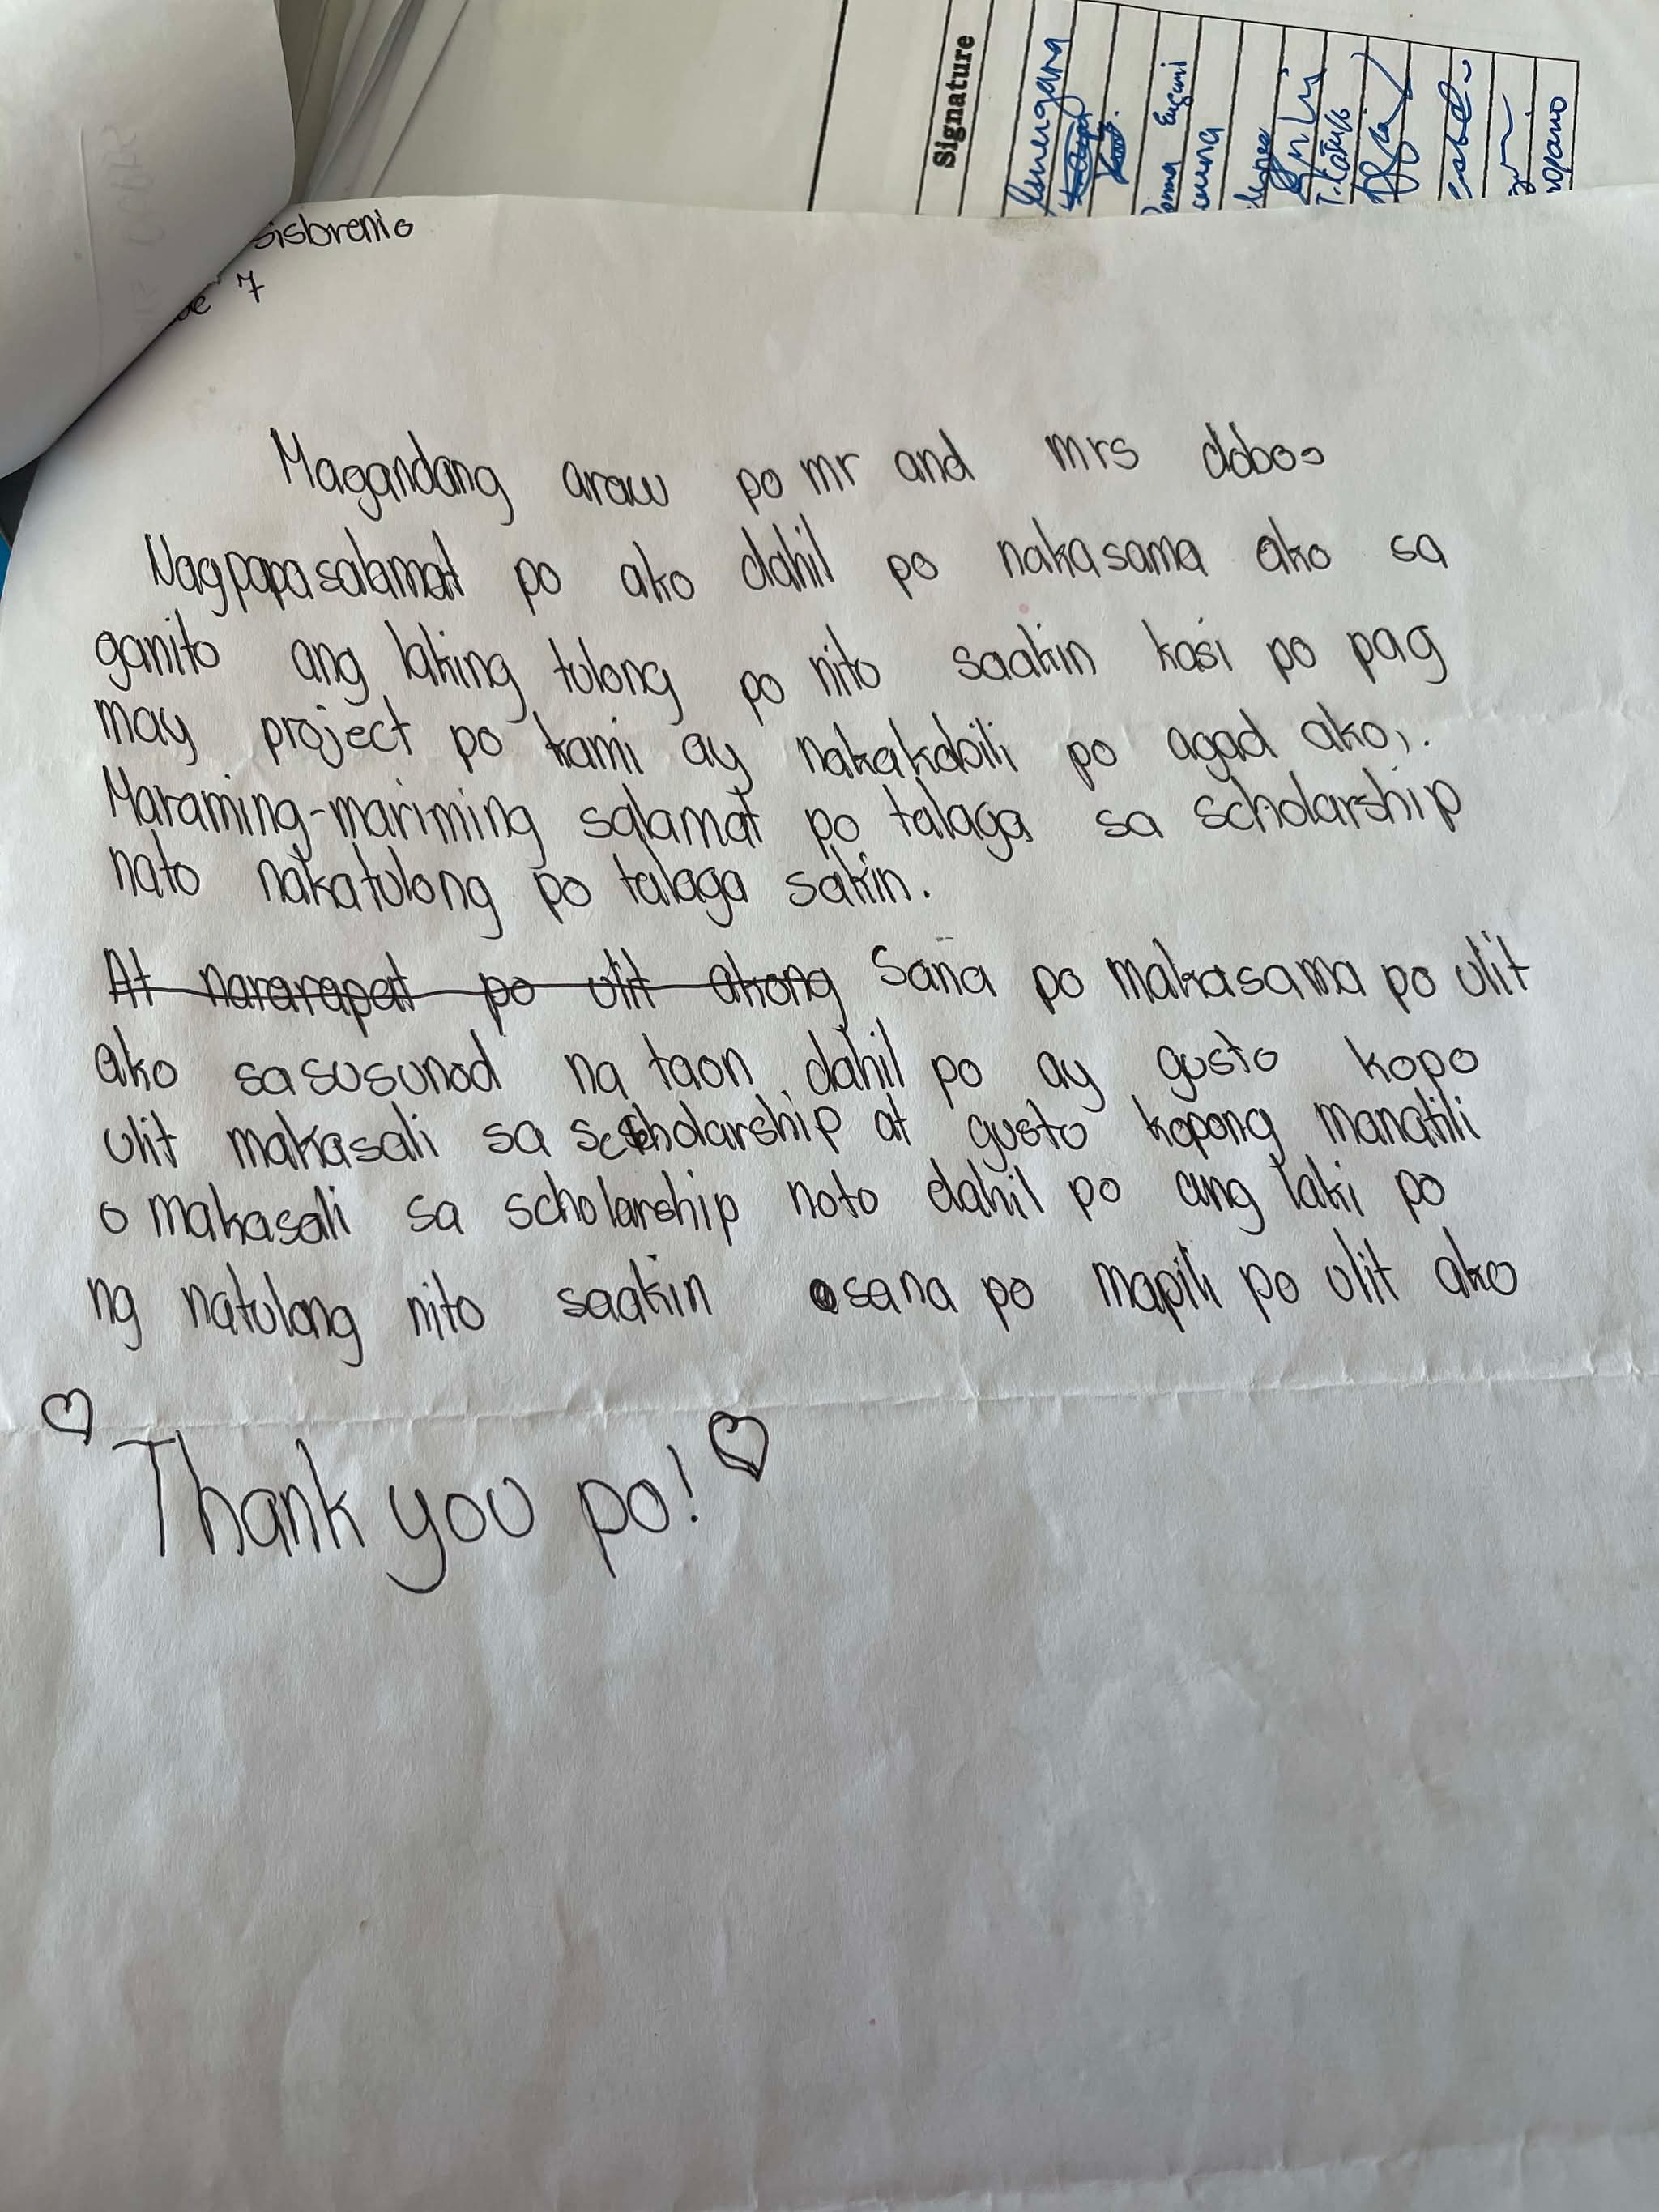 Signature
Eugeni
sisbrenio
7
Magandang araw po mr and mrs dobos
Nagpapasalamat po ako dahil po nakasama ako sa
ganito ang laking tulong po nito saakin kasi po pag
may project po kami ay nakakabili po agad ako,.
Maraming-mariming salamat po talaga sa scholarship
nato nakatulong po talaga sakin.
At nararapat po ulit akong Sana po makasama po ulit
ako sa susunod na taon dahil po ay gusto kopo
ulit makasali sa scholarship at gusto kopong manatili
o makasali sa scholarship nato dahil po ang laki po
ng natulong nito saakin sana po mapili po ulit ako
Thank you po!